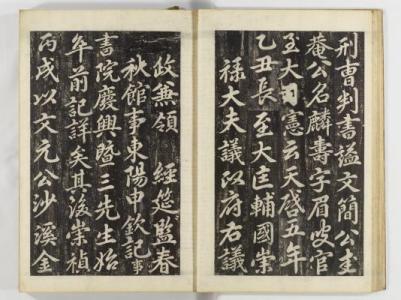 刑曹判書謚文簡公圭
菴公名麟壽字眉叟官
至大司憲云天啓五年
乙丑長至大匡輔國崇
祿大夫議政府右議
政兼領 經筵監春
秋館事東陽申欽記事
書院慶興暨三先生始
卒前記詳矣其後崇禎
丙戌以文元公沙溪金